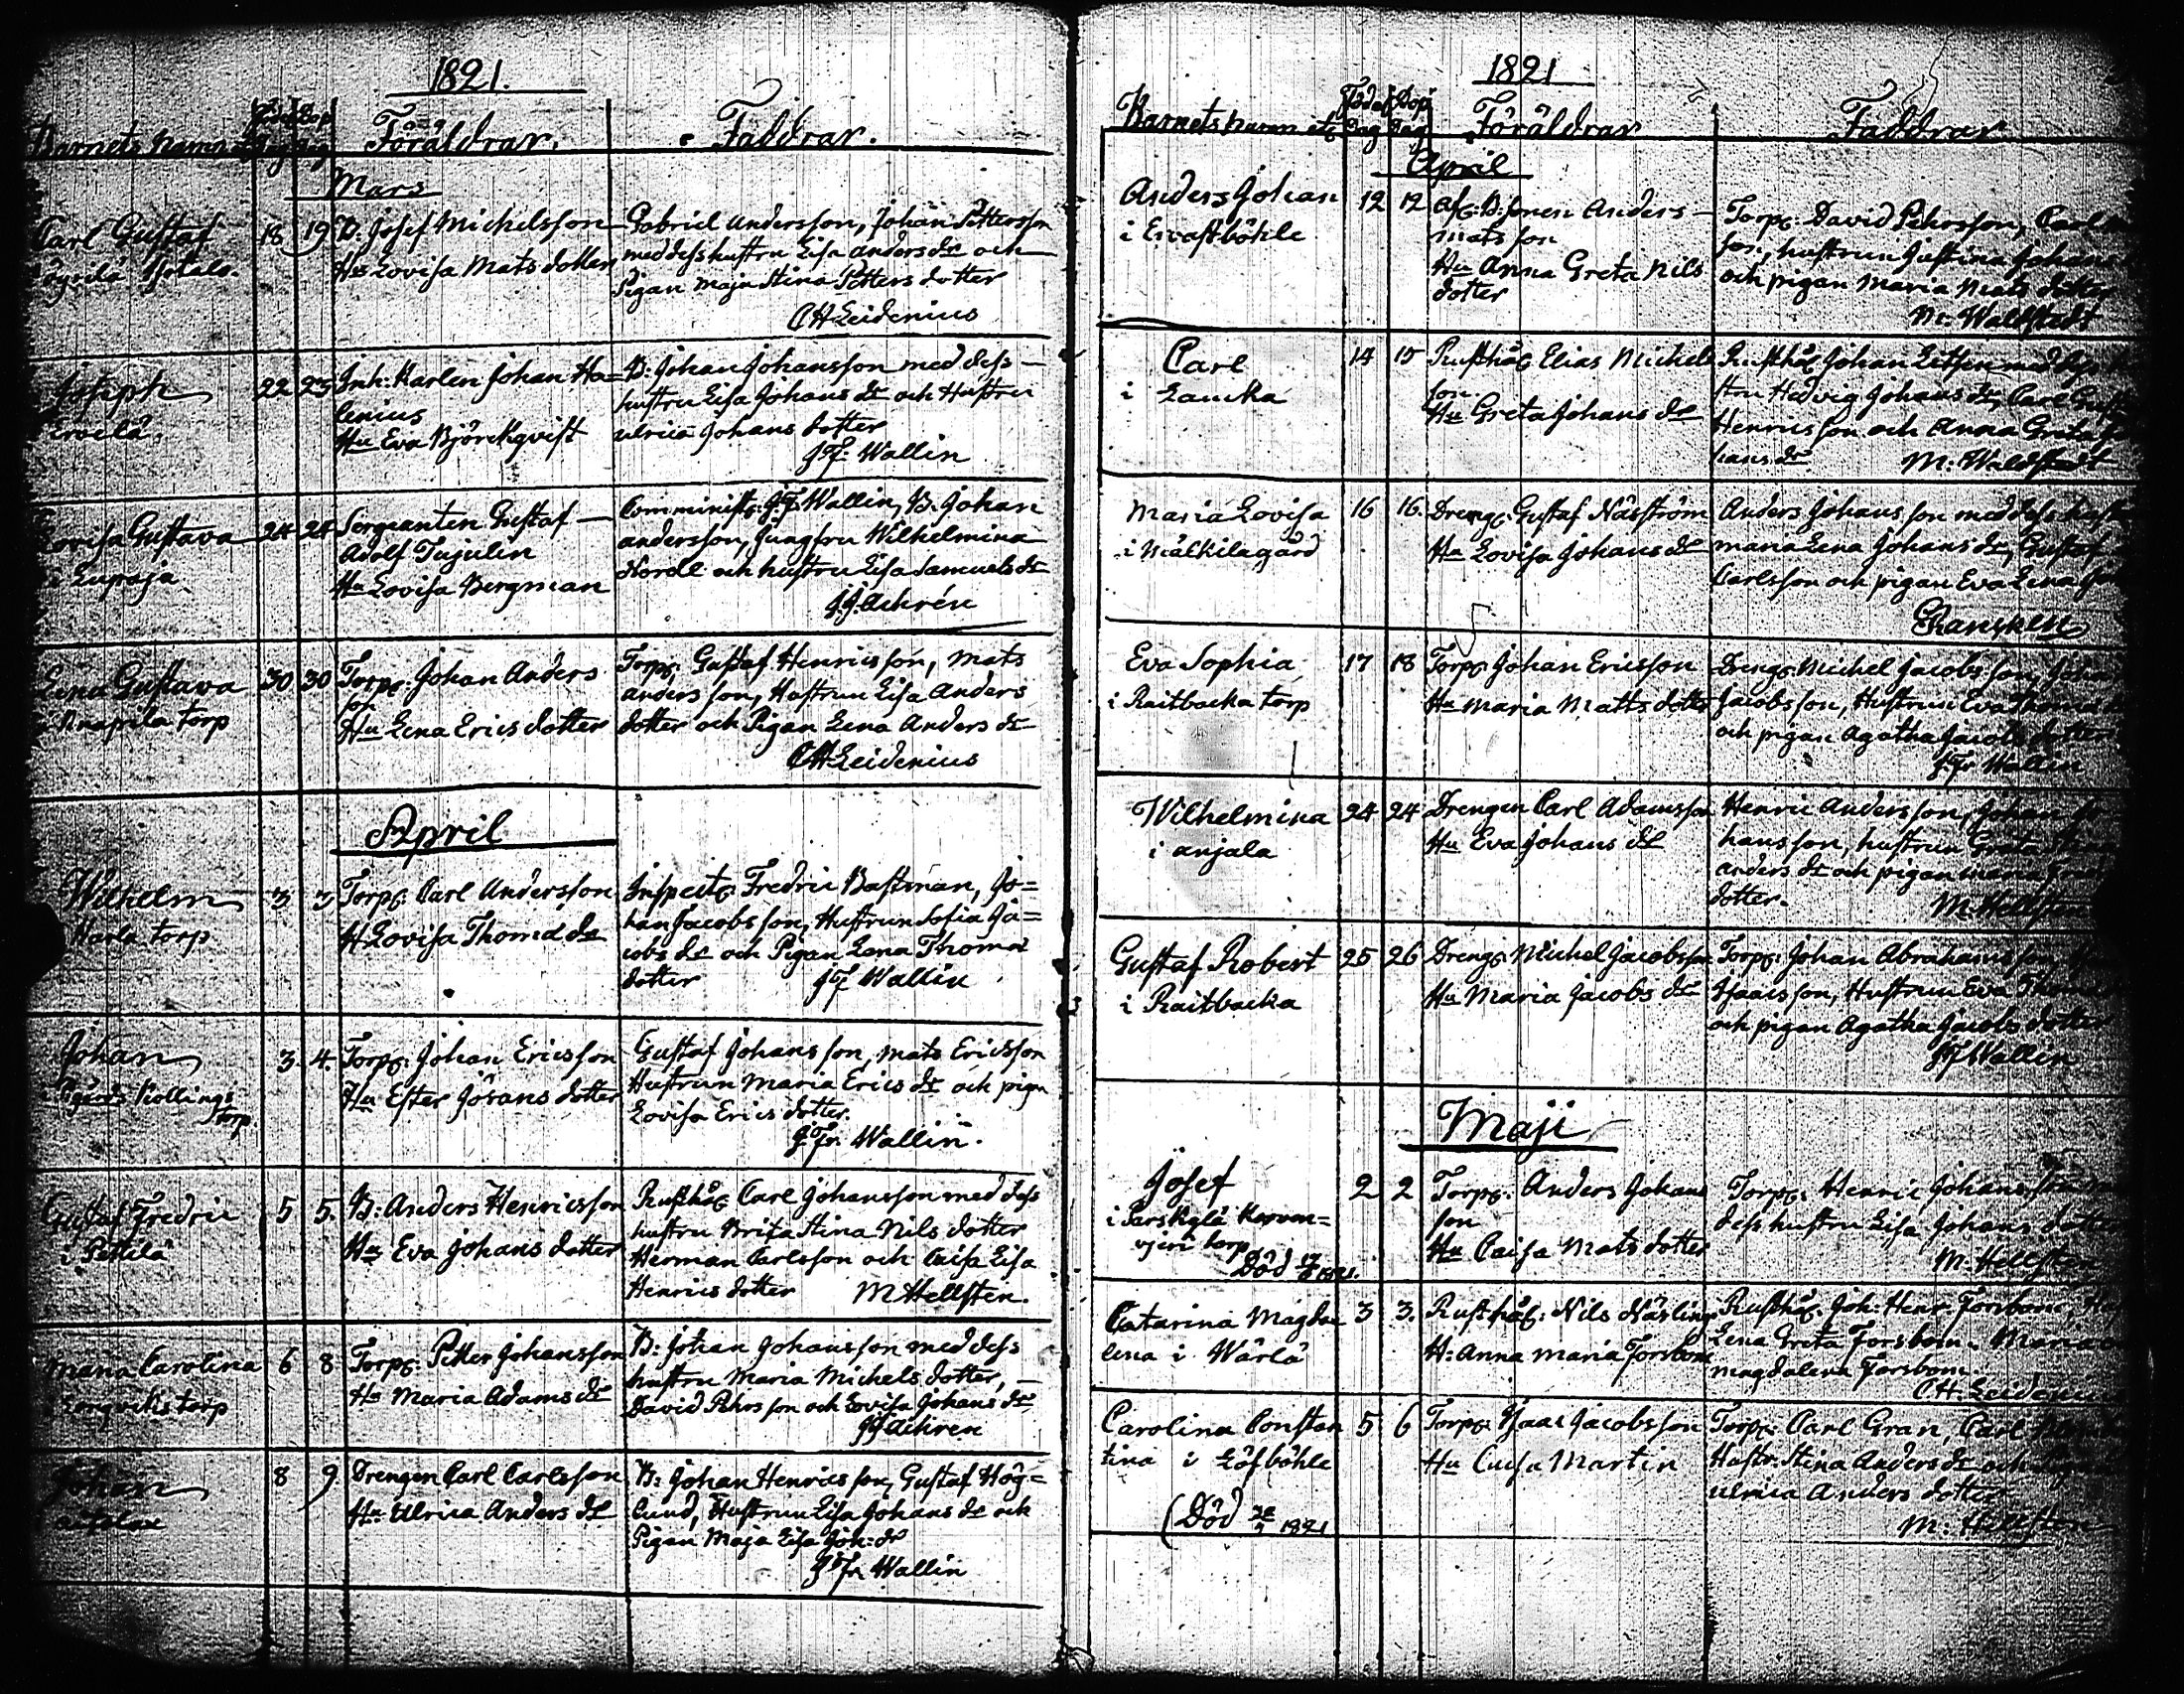 1821.
Barnets namn
Föräldrar.
Faddrar.
Mars
Carl Gustaf
18
19
B: Josef Michelsson
Hu Lovisa Mats dotter
Gabriel Andersson, Johan Pettersson
med dess hustru Lisa Anders dr och
Pigan Maja Stina Petters dotter
CH Leidenius
Joseph
Ervelä.
22
25
Inh: Karlen Johan Ha=
lenius
Hu Eva Björckqvist
B: Johan Johansson med dess
hustru Lisa Johans dr och Hustru
Ulrica Johans dotter
J F: Wallin
Lovisa Gustava
i Lupaja
24
24
Sergeanten Gustaf
Adolf Tujulin
Hu Lovisa Bergman
Comministr: J F Wallin, B. Johan
Andersson, Jungfru Wilhelmina
Nordl och hustru Lisa Samuels dr
J J Achrén
Lena Gustava
Knapila torp
30
30
Torp: Johan Anders
son
Hu Lena Erics dotter
Torp: Gustaf Henricsson, Mats
Andersson, Hustrun Lisa Anders
dotter och Pigan Lena Anders dr
CH Leidenius
April
Wilhelm
torp
3
3
Torp: Carl Andersson
H Lovisa Thomæ dr
Inspect: Fredric Bastman, Jo=
han Jacobsson, Hustrun Sofia Ja=
cobs dr och Pigan Lena Thomæ
dotter
J F Wallin
Johan
torp
3.
4.
Torp: Johan Ericsson
Hu Ester Jörans dotter
Gustaf Johansson, Mats Ericsson
Hustrun Maria Erics dr och pigan
Lovisa Erics dotter
J Fr. Wallin.
Gustaf Fredric
i Pettilä
5
5.
B: Anders Henricsson
Hu Eva Johans dotter
Rusthål Carl Johansson med dess
hustru Brita Stina Nils dotter
Herman Carlsson och Caisa Lisa
Henrics dotter
M Hellsten.
Maria Carolina
torp
6
8
Torp: Petter Johansson
Hu Maria Adams dr
B: Johan Johansson med dess
hustru Maria Michels dotter,
David Pehrsson och Lovisa Johans dr
JJ Achren
Johan
8
9
Drengen Carl Carlsson
Hu Ulrica Anders dr
B: Johan Henricsson, Gustaf Hög=
lund, Hustrun Lisa Johans dr och
Pigan Maja Lisa Joh: dr
J Fr Wallin
1821
Barnets namn etc
Föd. Dag
Dop Dag
Föräldrar
Faddrar
April
Anders Johan
12
12
Anders
Matsson
Hu Anna Greta Nils
dotter
Torp: David Pehrsson, Carl
son, hustrun Justina Johans
och pigan Maria Mats dotter
M: Waldstedt
Carl
i Lanka
14
15
Rusthål Elias Michels
son
Hu Greta Johans dr
Rusthål Johan med dess
stru Hedvig Johans dr, Carl
Henricsson och Anna Greta Jo
hans dr
M: Waldstedt
Maria Lovisa
i Mälkilagård
16
16.
Dreng: Gustaf Näsström
Hu Lovisa Johans dr
Anders Johansson med dess
Maria Lena Johans dr, Gustaf
Carlsson och pigan Eva Lena
Eva Sophia
i Raitbacka torp
17
18
Torp: Johan Ericsson
Hu Maria Matts dotter
Dreng: Michel Jacobsson, Johan
Jacobsson, Hustrun Eva Thomæ
och pigan Agatha Jacobs dotter
J Fr Wallin
Wilhelmina
i Anjala
24
24
Drengen Carl Adamsson
Hu Eva Johans dr
Henric Andersson, Johan
hansson, hustrun Greta
Anders dr och pigan Maria
dotter.
M. Hellsten
Gustaf Robert
i Raitbacka
25
26
Dreng: Michel Jacobsson
Hu Maria Jacobs dr
Torp: Johan Abrahamsson
Isaacsson, Hustrun Eva Thomæ
och pigan Agatha Jacobs dotter
J F Wallin
Maji
Josef
torp
Död
2
2
Torp: Anders Johans
son
Hu Caisa Mats dotter
Torp: Henric Johansson
dess hustru Lisa Johans dotter
M. Hellsten
Catarina Magda
lena i Wärlä
3
3.
Rusthål: Nils Näsling
H: Anna Maria Forsbom
Rusthål. Joh: Henr. Forsbom
Lena Greta Forsbom. Maria
Magdalena Forsbom
CH. Leidenius
Carolina Constan
tina i Löfböhle
(Död 1821
5
6
Torp: Isaac Jacobsson
Hu Caisa Martin
Torp: Carl Gran, Carl
Hustr. Stina Anders dr och
Ulrica Anders dotter
M: Hellsten